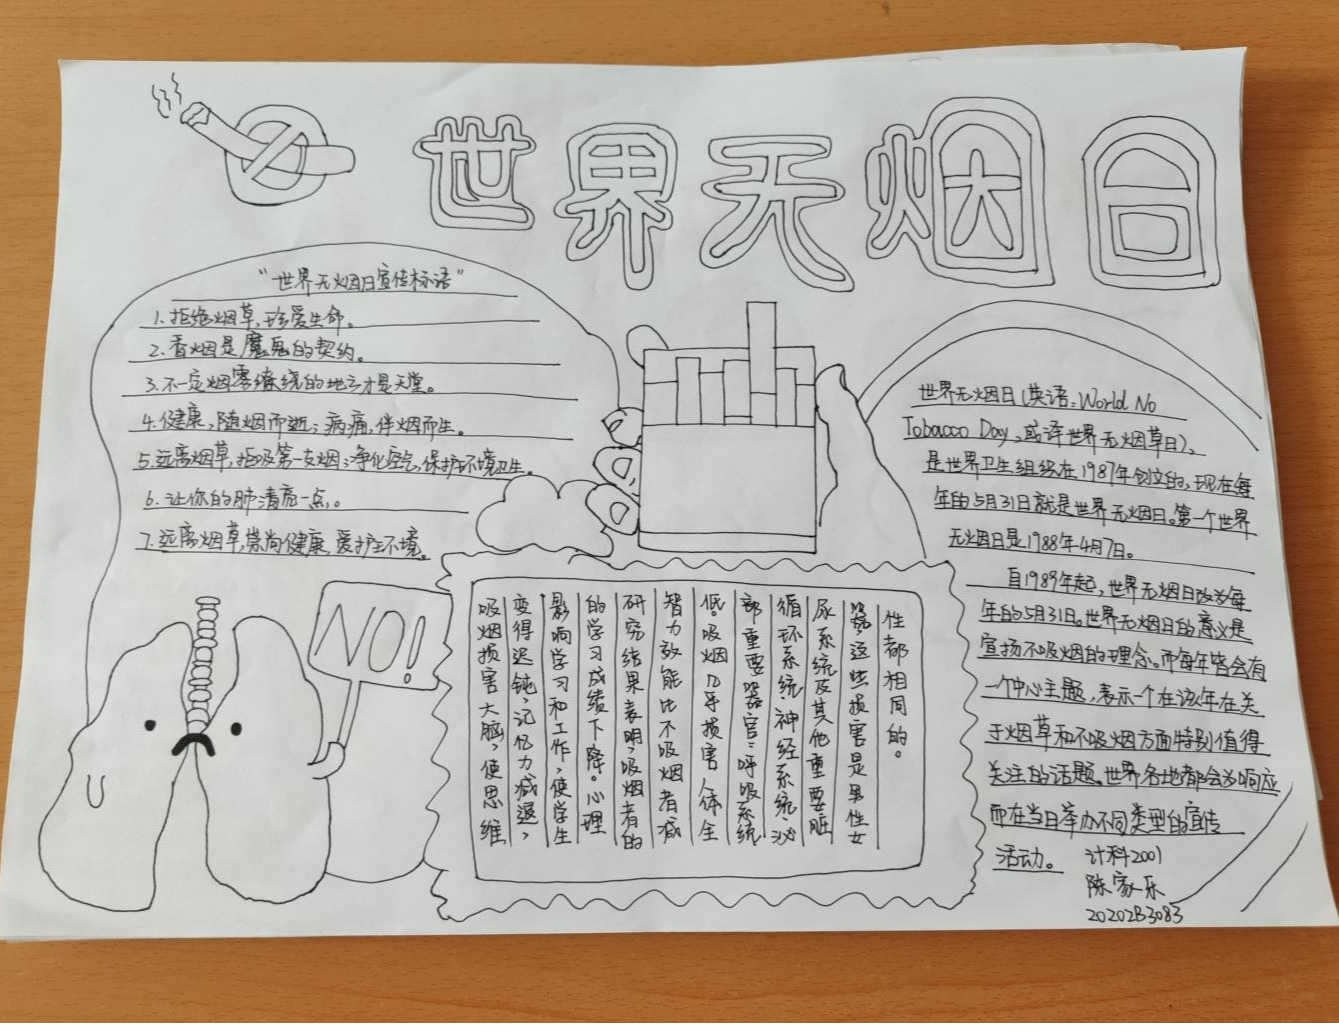 世界无烟日
“世界无烟日宣传标语”
1.拒绝烟草,珍爱生命。
2.香烟是魔鬼的契约。
3.不一定烟雾缭绕的地方才是天堂。
4.健康,随烟而逝;病痛,伴烟而生。
5.远离烟草,拒吸第一支烟;净化空气,保护环境卫生。
6.让你的肺清亮一点。
7.远离烟草,崇尚健康,爱护环境。
NO!
吸烟损害大脑,使思维
变得迟钝,记忆力减退,
影响学习和工作,使学生
的学习成绩下降。心理
研究结果表明,吸烟者的
智力效能比不吸烟者减
低。吸烟几乎损害人体全
部重要器官:呼吸系统
循环系统、神经系统、泌
尿系统及其他重要脏
器,这些损害是男性女
性都相同的。
世界无烟日(英语:World No
Tobacco Day,或译世界无烟草日),
是世界卫生组织在1987年创立的,现在每
年的5月31日就是世界无烟日。第一个世界
无烟日是1988年4月7日。
自1989年起,世界无烟日改为每
年的5月31日。世界无烟日的意义是
宣扬不吸烟的理念。而每年皆会有
一个中心主题,表示一个在该年在关
于烟草和不吸烟方面特别值得
关注的话题。世界各地都会为响应
而在当日举办不同类型的宣传
活动。
计科2001
陈家乐
20202B3083